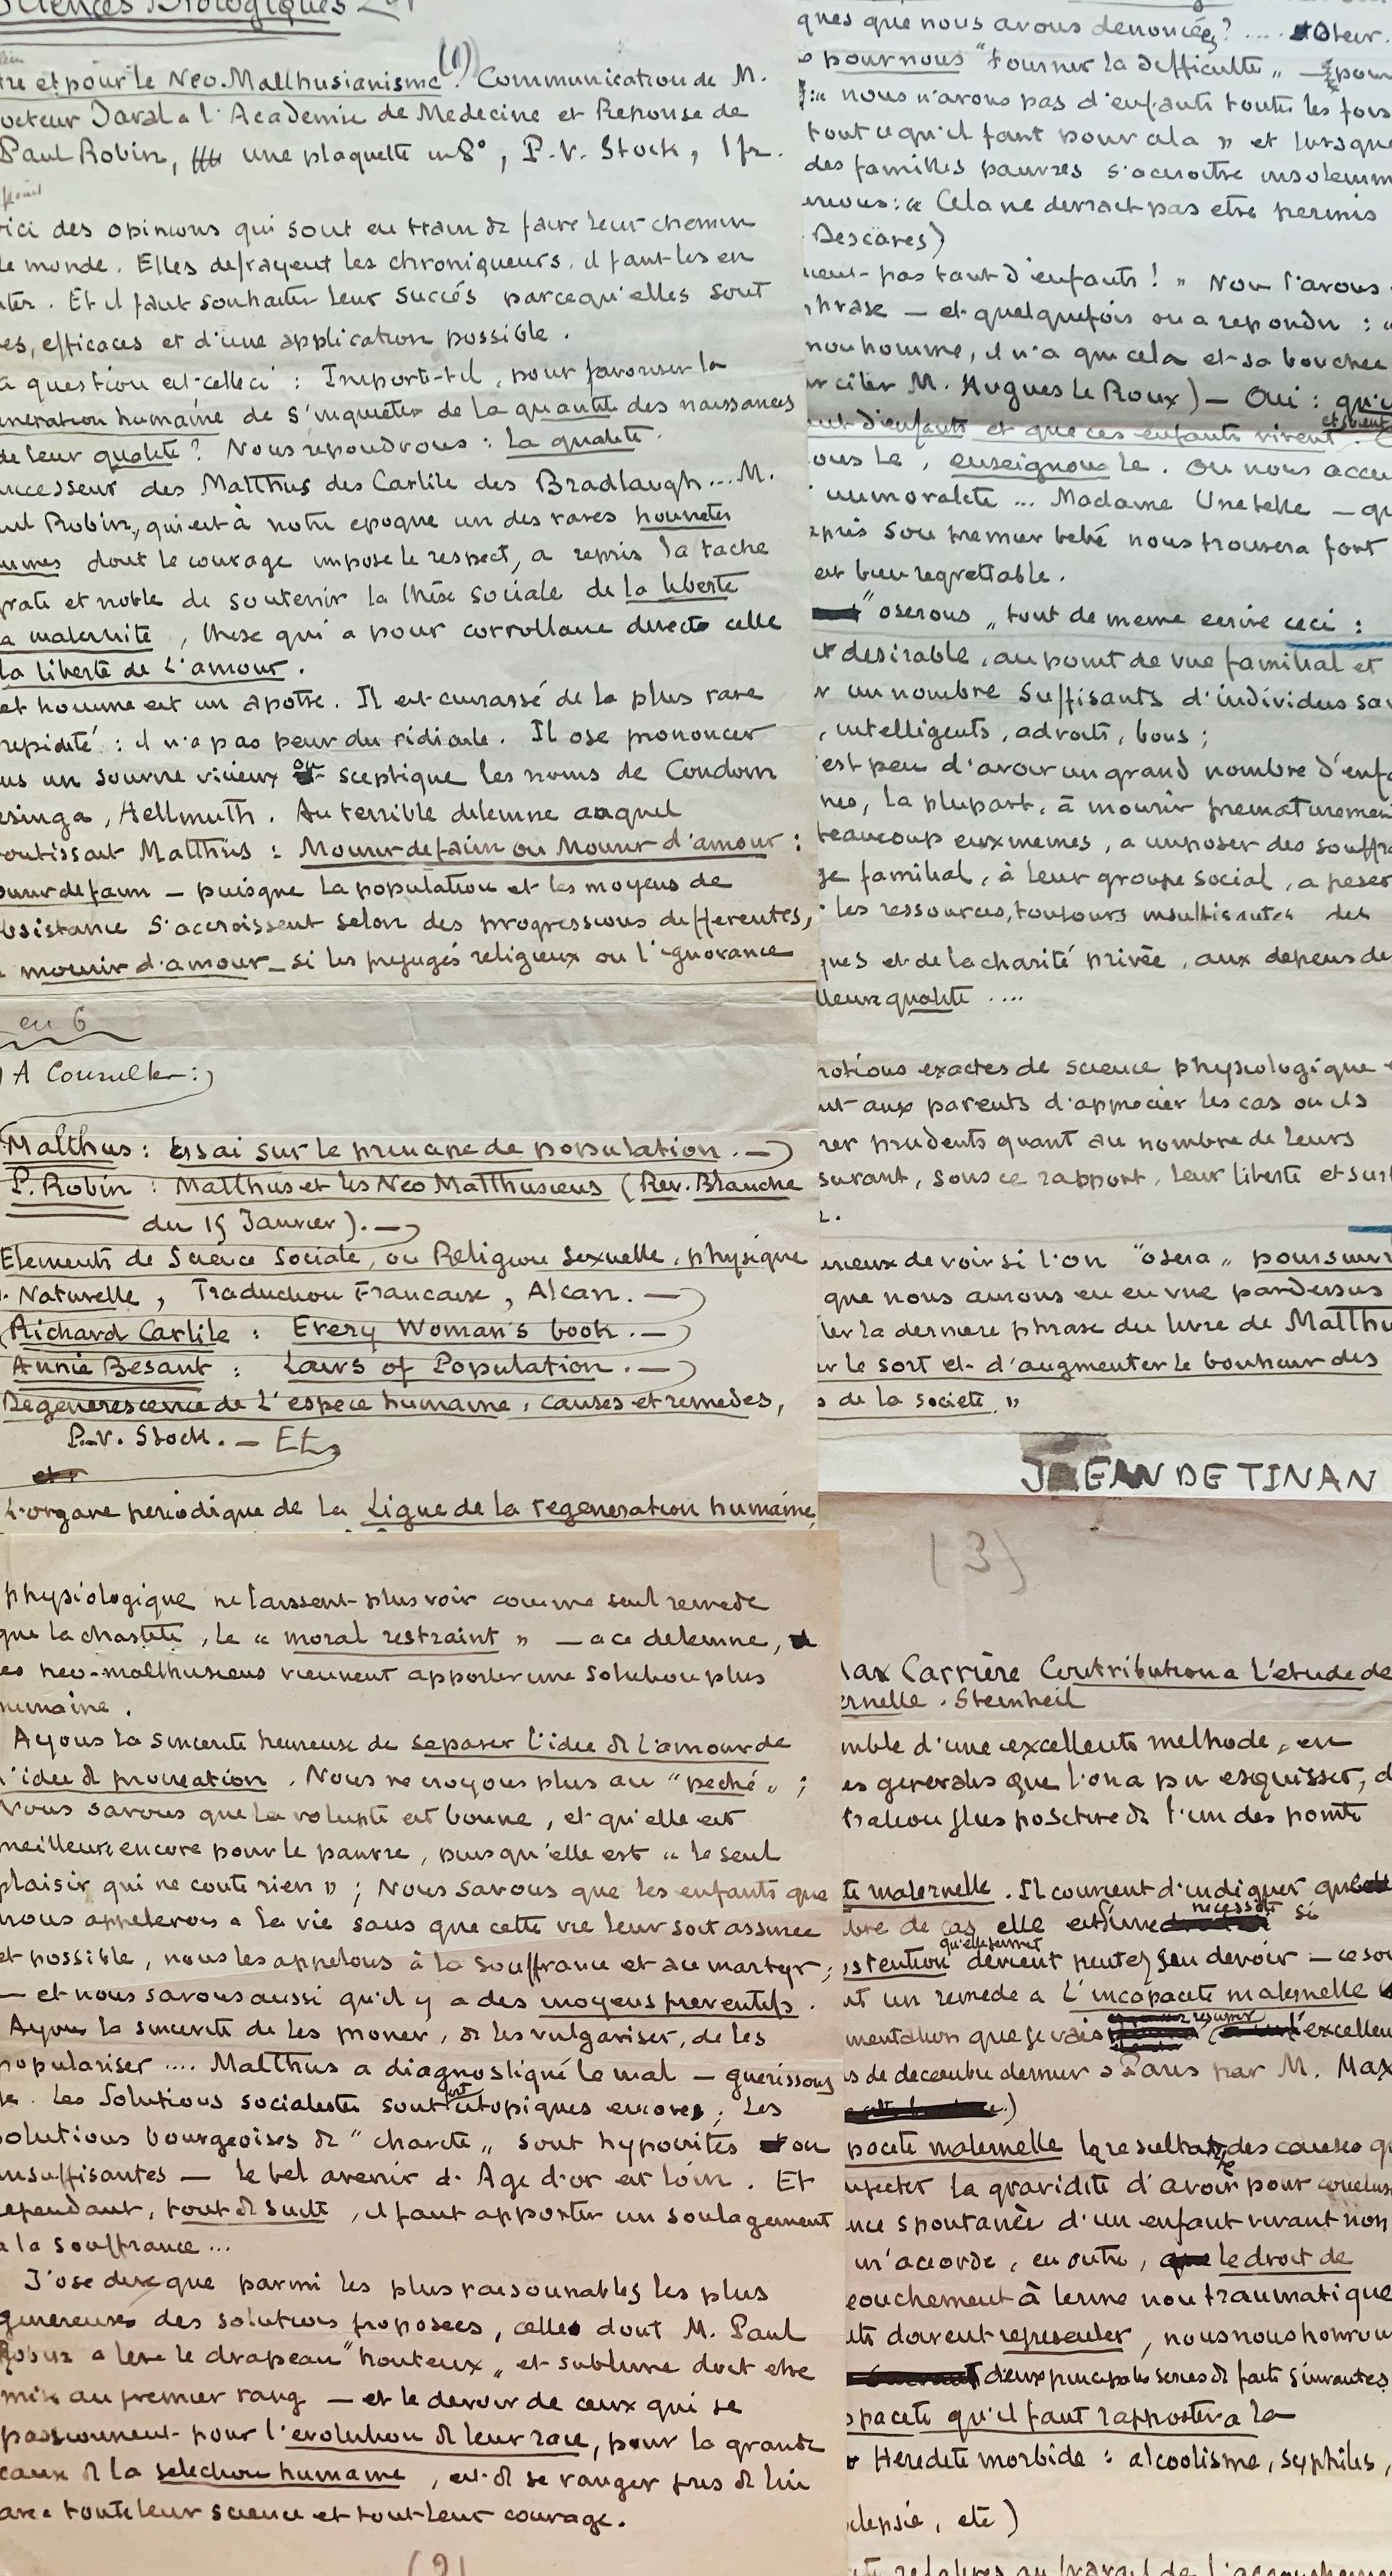 Sciences Biologiques
tre et pour le Neo-Malthusianisme (1). Communication de M.
octeur Javal a l'Academie de Medecine et Reponse de
Paul Robin, une plaquette in 8°, P.V. Stock, 1 fr.
ici des opinions qui sont en train de faire leur chemin
le monde. Elles defrayent les chroniqueurs, il faut les en
ter. Et il faut souhaiter leur succés parcequ'elles sont
es, efficaces et d'une application possible.
a question est celle ci : Importe-t-il, pour favoriser la
neration humaine de s'inquiéter de la quantité des naissances
de leur qualité ? Nous repondrons : la qualité.
uccesseur des Malthus des Carlile des Bradlaugh... M.
ul Robin, qui est à notre epoque un des rares honnetes
mmes dont le courage impose le respect, a repris la tache
grate et noble de soutenir la thése sociale de la liberte
a maternité, these qui a pour corrollaire directe celle
la liberté de l'amour.
et homme est un apotre. Il est cuirassé de la plus rare
repidité : il n'a pas peur du ridicule. Il ose prononcer
us un sourire vicieux ou sceptique les noms de Condom
esinga, Hellmuth. Au terrible dilemne auquel
boutissait Malthus : Mourir de faim ou Mourir d'amour :
ourir de faim — puisque la population et les moyens de
bsistance s'accroissent selon des progressions differentes,
mourir d'amour — si les prejugés religieux ou l'ignorance
en 6
) A Consulter :
Malthus : Essai sur le principe de population. —
P. Robin : Malthus et les Neo Malthusiens (Rev. Blanche
du 15 Janvier). —
Elements de Science Sociale, ou Religion sexuelle, physique
. Naturelle, Traduction Francaise, Alcan. —
Richard Carlile : Every Woman's book. —
Annie Besant : Laws of Population. —
Degenerescence de l'espece humaine, causes et remedes,
P.V. Stock. — Etc
L'organe periodique de la Ligue de la regeneration humaine,
physiologique ne laissent plus voir comme seul remede
que la chasteté, le « moral restraint » — a ce dilemne,
es neo-malthusiens viennent apporter une solution plus
humaine.
Ayons la sincerité heureuse de separer l'idee de l'amour de
l'idee de procreation. Nous ne croyons plus au "peché" ;
Nous savons que la volupté est bonne, et qu'elle est
meilleure encore pour le pauvre, puisqu'elle est « le seul
plaisir qui ne coute rien » ; Nous savons que les enfants que
nous appelerons a la vie sans que cette vie leur soit assuree
et possible, nous les appelons à la souffrance et au martyr ;
— et nous savons aussi qu'il y a des moyens preventifs.
Ayons la sincerité de les proner, de les vulgariser, de les
populariser .... Malthus a diagnostiqué le mal — guerissons
le. Les Solutions socialistes sont utopiques encore ; Les
solutions bourgeoises de "charité" sont hypocrites ou
insuffisantes — le bel avenir d'Age d'or est loin. Et
cependant, tout de suite, il faut apporter un soulagement
a la souffrance ...
J'ose dire que parmi les plus raisonnables les plus
genereuses des solutions proposees, celle dont M. Paul
Robin a levé le drapeau "honteux" et sublime doit etre
mise au premier rang — et le devoir de ceux qui se
passionnent pour l'evolution de leur race, pour la grande
cause de la selection humaine, est de se ranger pres de lui
avec toute leur science et tout leur courage.
(2)
ques que nous avons denoncées ? ....
pour nous "tourner la difficulté" —
« nous n'avons pas d'enfants toutes les fois
tout ce qu'il faut pour cela » et lorsque
des familles pauvres s'accroitre insolemm
« Cela ne devrait pas etre permis
Descaves)
pas tant d'enfants ! » Nou l'avons
phrase — et quelquefois on a repondu : «
mon homme, il n'a que cela et sa bouchee
r citer M. Hugues le Roux) — Oui : qu'i
d'enfants et que ces enfants vivent.
ous le, enseignons le. On nous accu
immoralité ... Madame Unetelle — qu
apris son premier bebé nous trouvera fort
est bien regrettable.
"oserons" tout de meme ecrire ceci :
desirable, au point de vue familial et
un nombre suffisants d'individus sa
, intelligents, adroits, bons ;
est peu d'avoir un grand nombre d'enfa
nes, la plupart, à mourir prematuremen
beaucoup eux memes, a imposer des souffra
ge familial, à leur groupe social, a peser
les ressources, toujours insuffisantes des
ques et de la charité privée, aux depens de
lleure qualité ....
notions exactes de science physiologique
nt aux parents d'apprecier les cas ou ils
rer prudents quant au nombre de leurs
surant, sous ce rapport, leur liberté et surt
rieux de voir si l'on "osera" poursuivr
que nous aurons eu en vue par dessus
ter la derniere phrase du livre de Malthu
r le sort et d'augmenter le bonheur des
s de la societé »
JEAN DE TINAN
(3)
Max Carrière Contribution a l'etude de
ernelle. Steinheil
mble d'une excellente methode, en
es generales que l'on a pu esquisser, d
tration plus positive de l'un des points
té maternelle. Il convient d'indiquer que
bre de cas elle est une necessité si
stention qu'elle permet devient peutez un devoir — ce so
nt un remede a l'incapacité maternelle
mentation que je vais resumer l'excellen
s de decembre dernier a Paris par M. Max
pacité maternelle la resultante des causes q
la gravidité d'avoir pour conclus
nce spontanée d'un enfant vivant non
m'accorde, en outre, le droit de
couchement à terme non traumatique
doivent representer, nous nous honoron
deux principales series de faits suivantes
pacité qu'il faut rapporter a la
Heredité morbide : alcoolisme, syphilis,
ilepsie, etc)